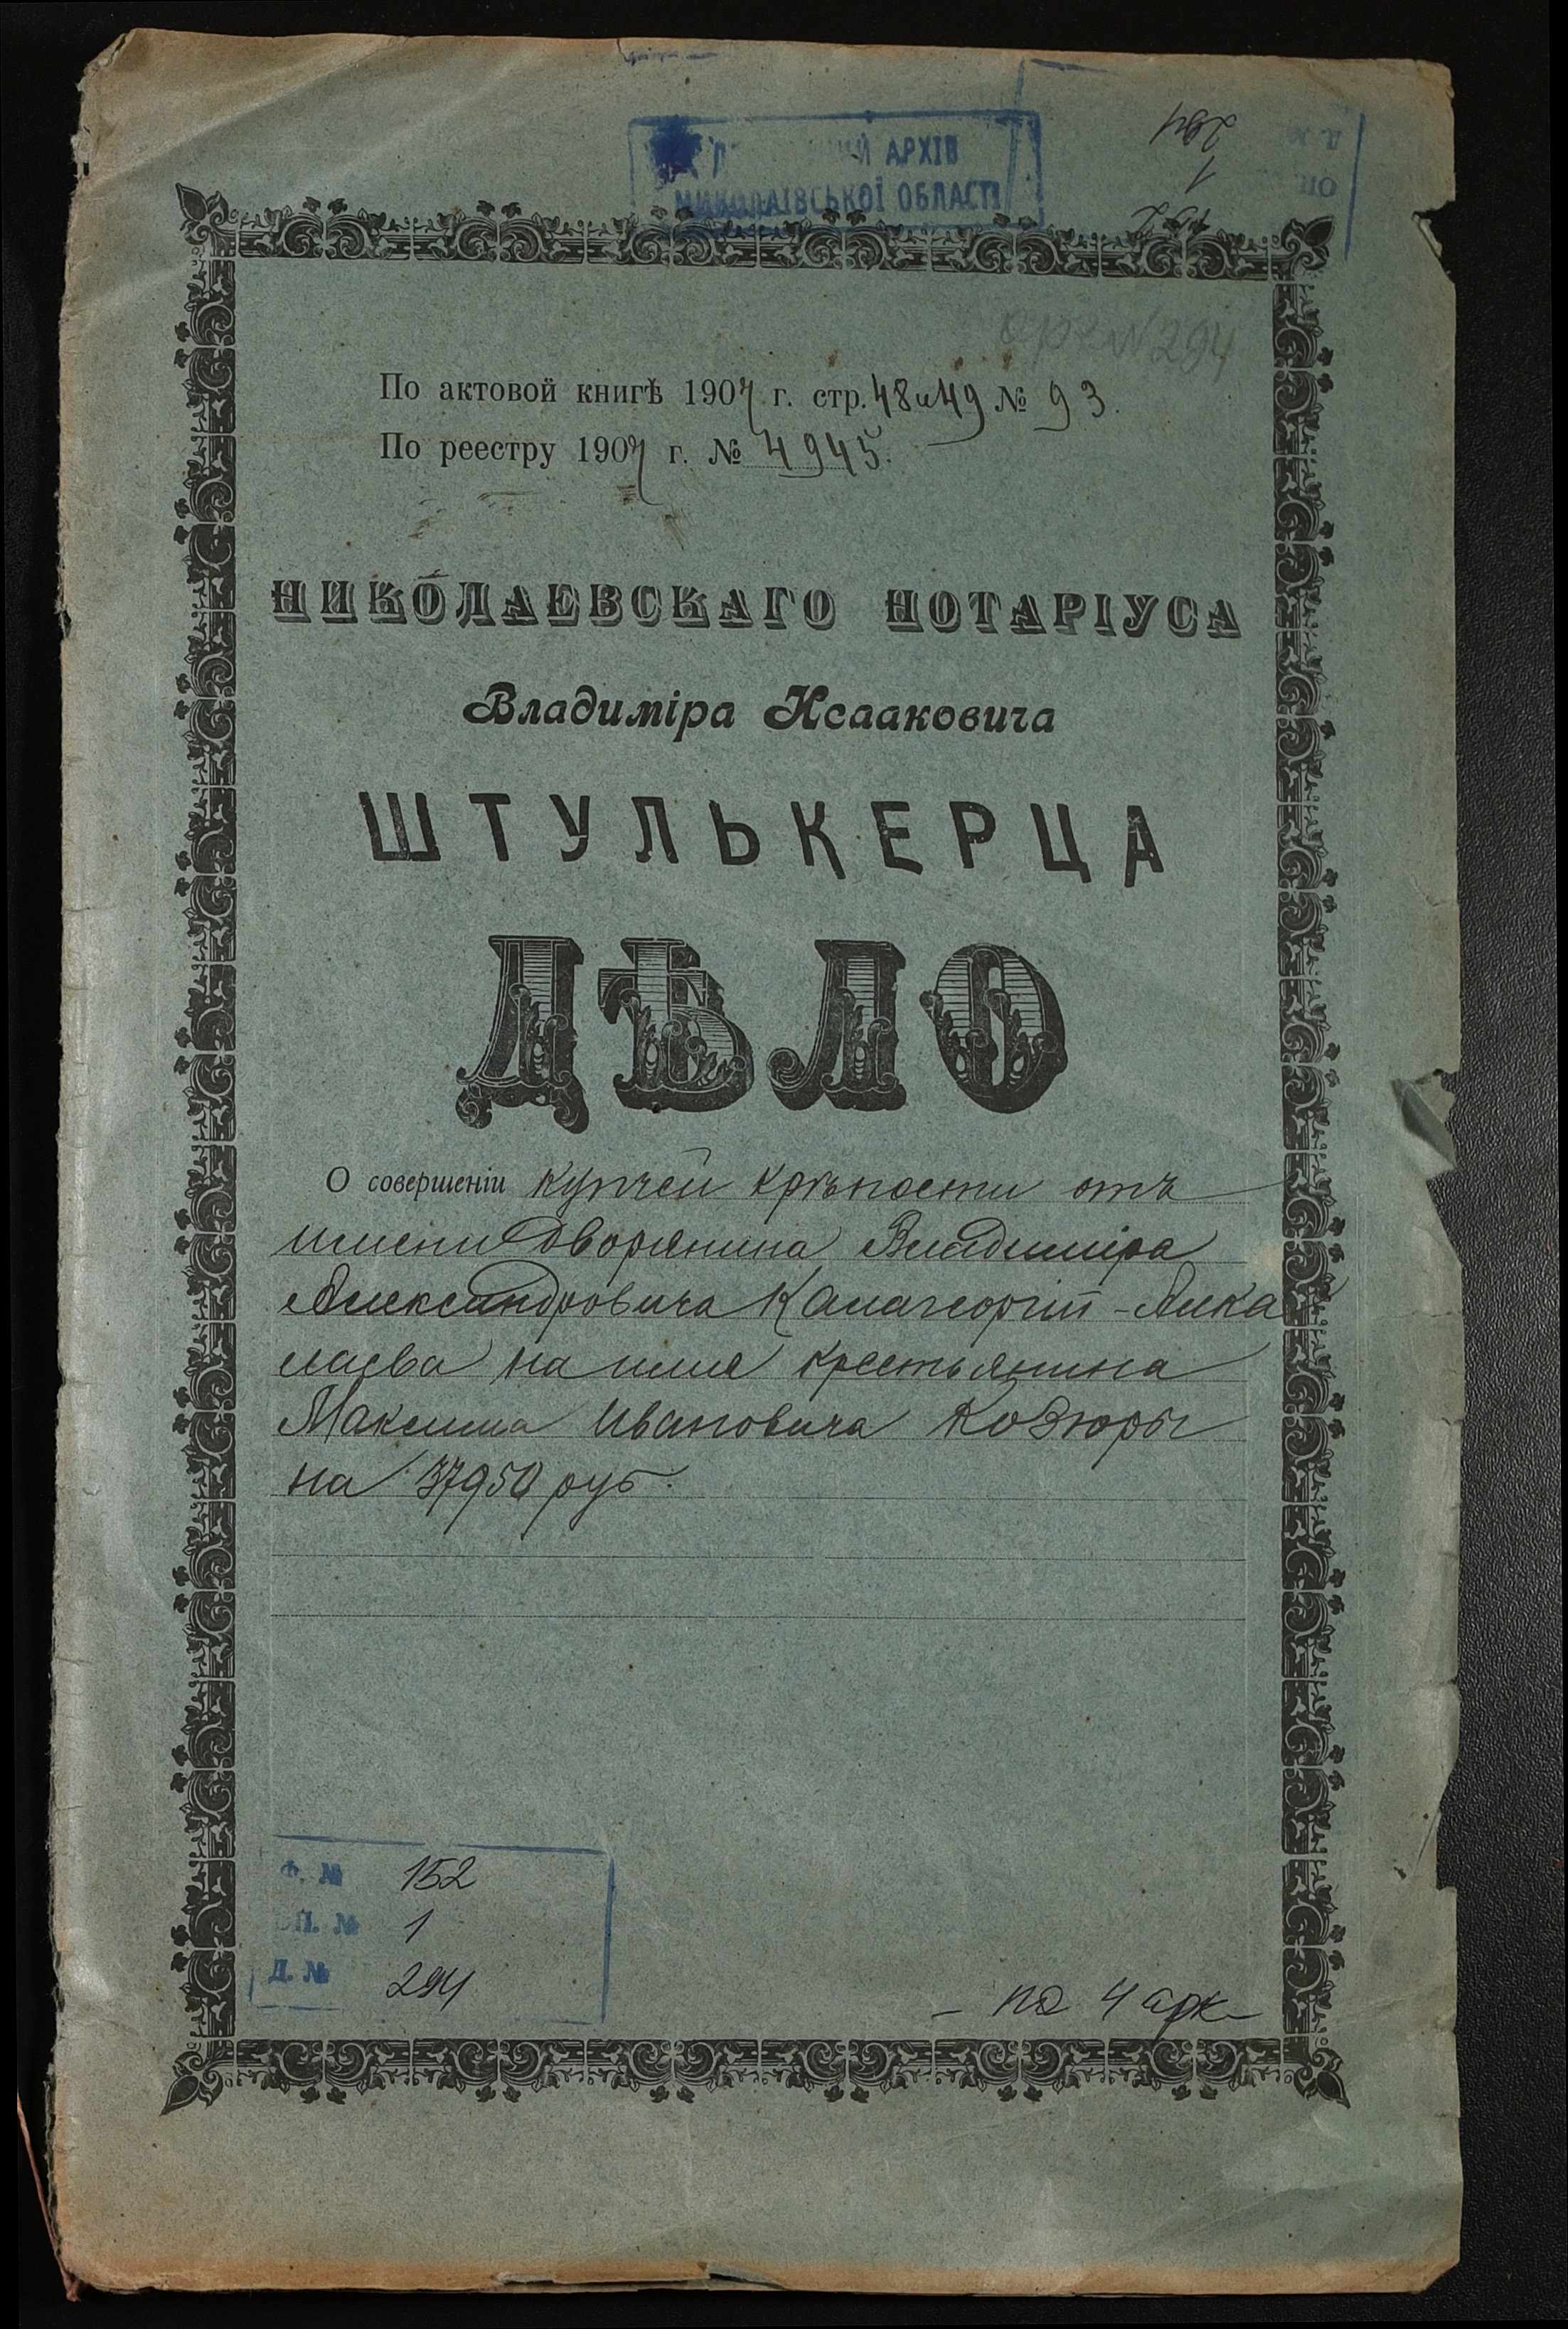 АРХІВ
МИКОЛАЇВСЬКОЇ ОБЛАСТІ
294
1
152
№ 294
По актовой книгѣ 1907 г. стр. 48 и 49 № 93.
По реестру 1907 г. № 4945.
НИКОЛАЕВСКАГО НОТАРІУСА
Владиміра Исааковича
ШТУЛЬКЕРЦА
ДѢЛО
О совершеніи купчей крѣпости отъ
имени Дворянина Владиміра
Александровича Калагеоргій-Алка
лаева на имя крестьянина
Максима Ивановича Козюры
на 37950 руб.
Ф. № 152
ОП. № 1
Д. № 294
- на 4 арк -